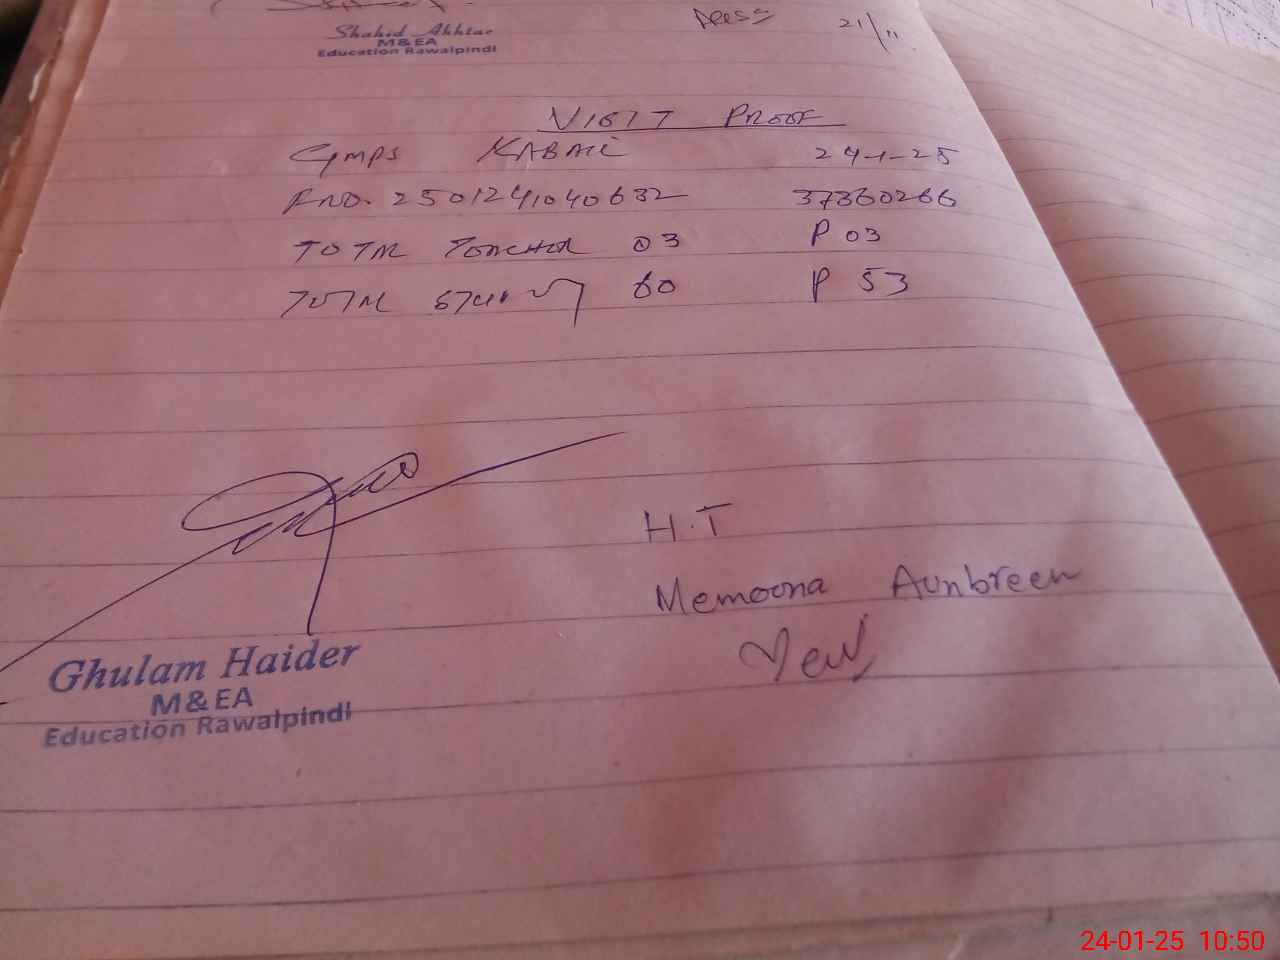 Shahid Akhtar
M&EA
Education Rawalpindi
21/11
VISIT PROOF
GMPS KABALI 24-1-25
R NO. 2501241040632 37360266
TOTAL TEACHER 03 P 03
TOTAL 60 P 53
H.T
Memoona Aunbreen
Ghulam Haider
M&EA
Education Rawalpindi
24-01-25 10:50